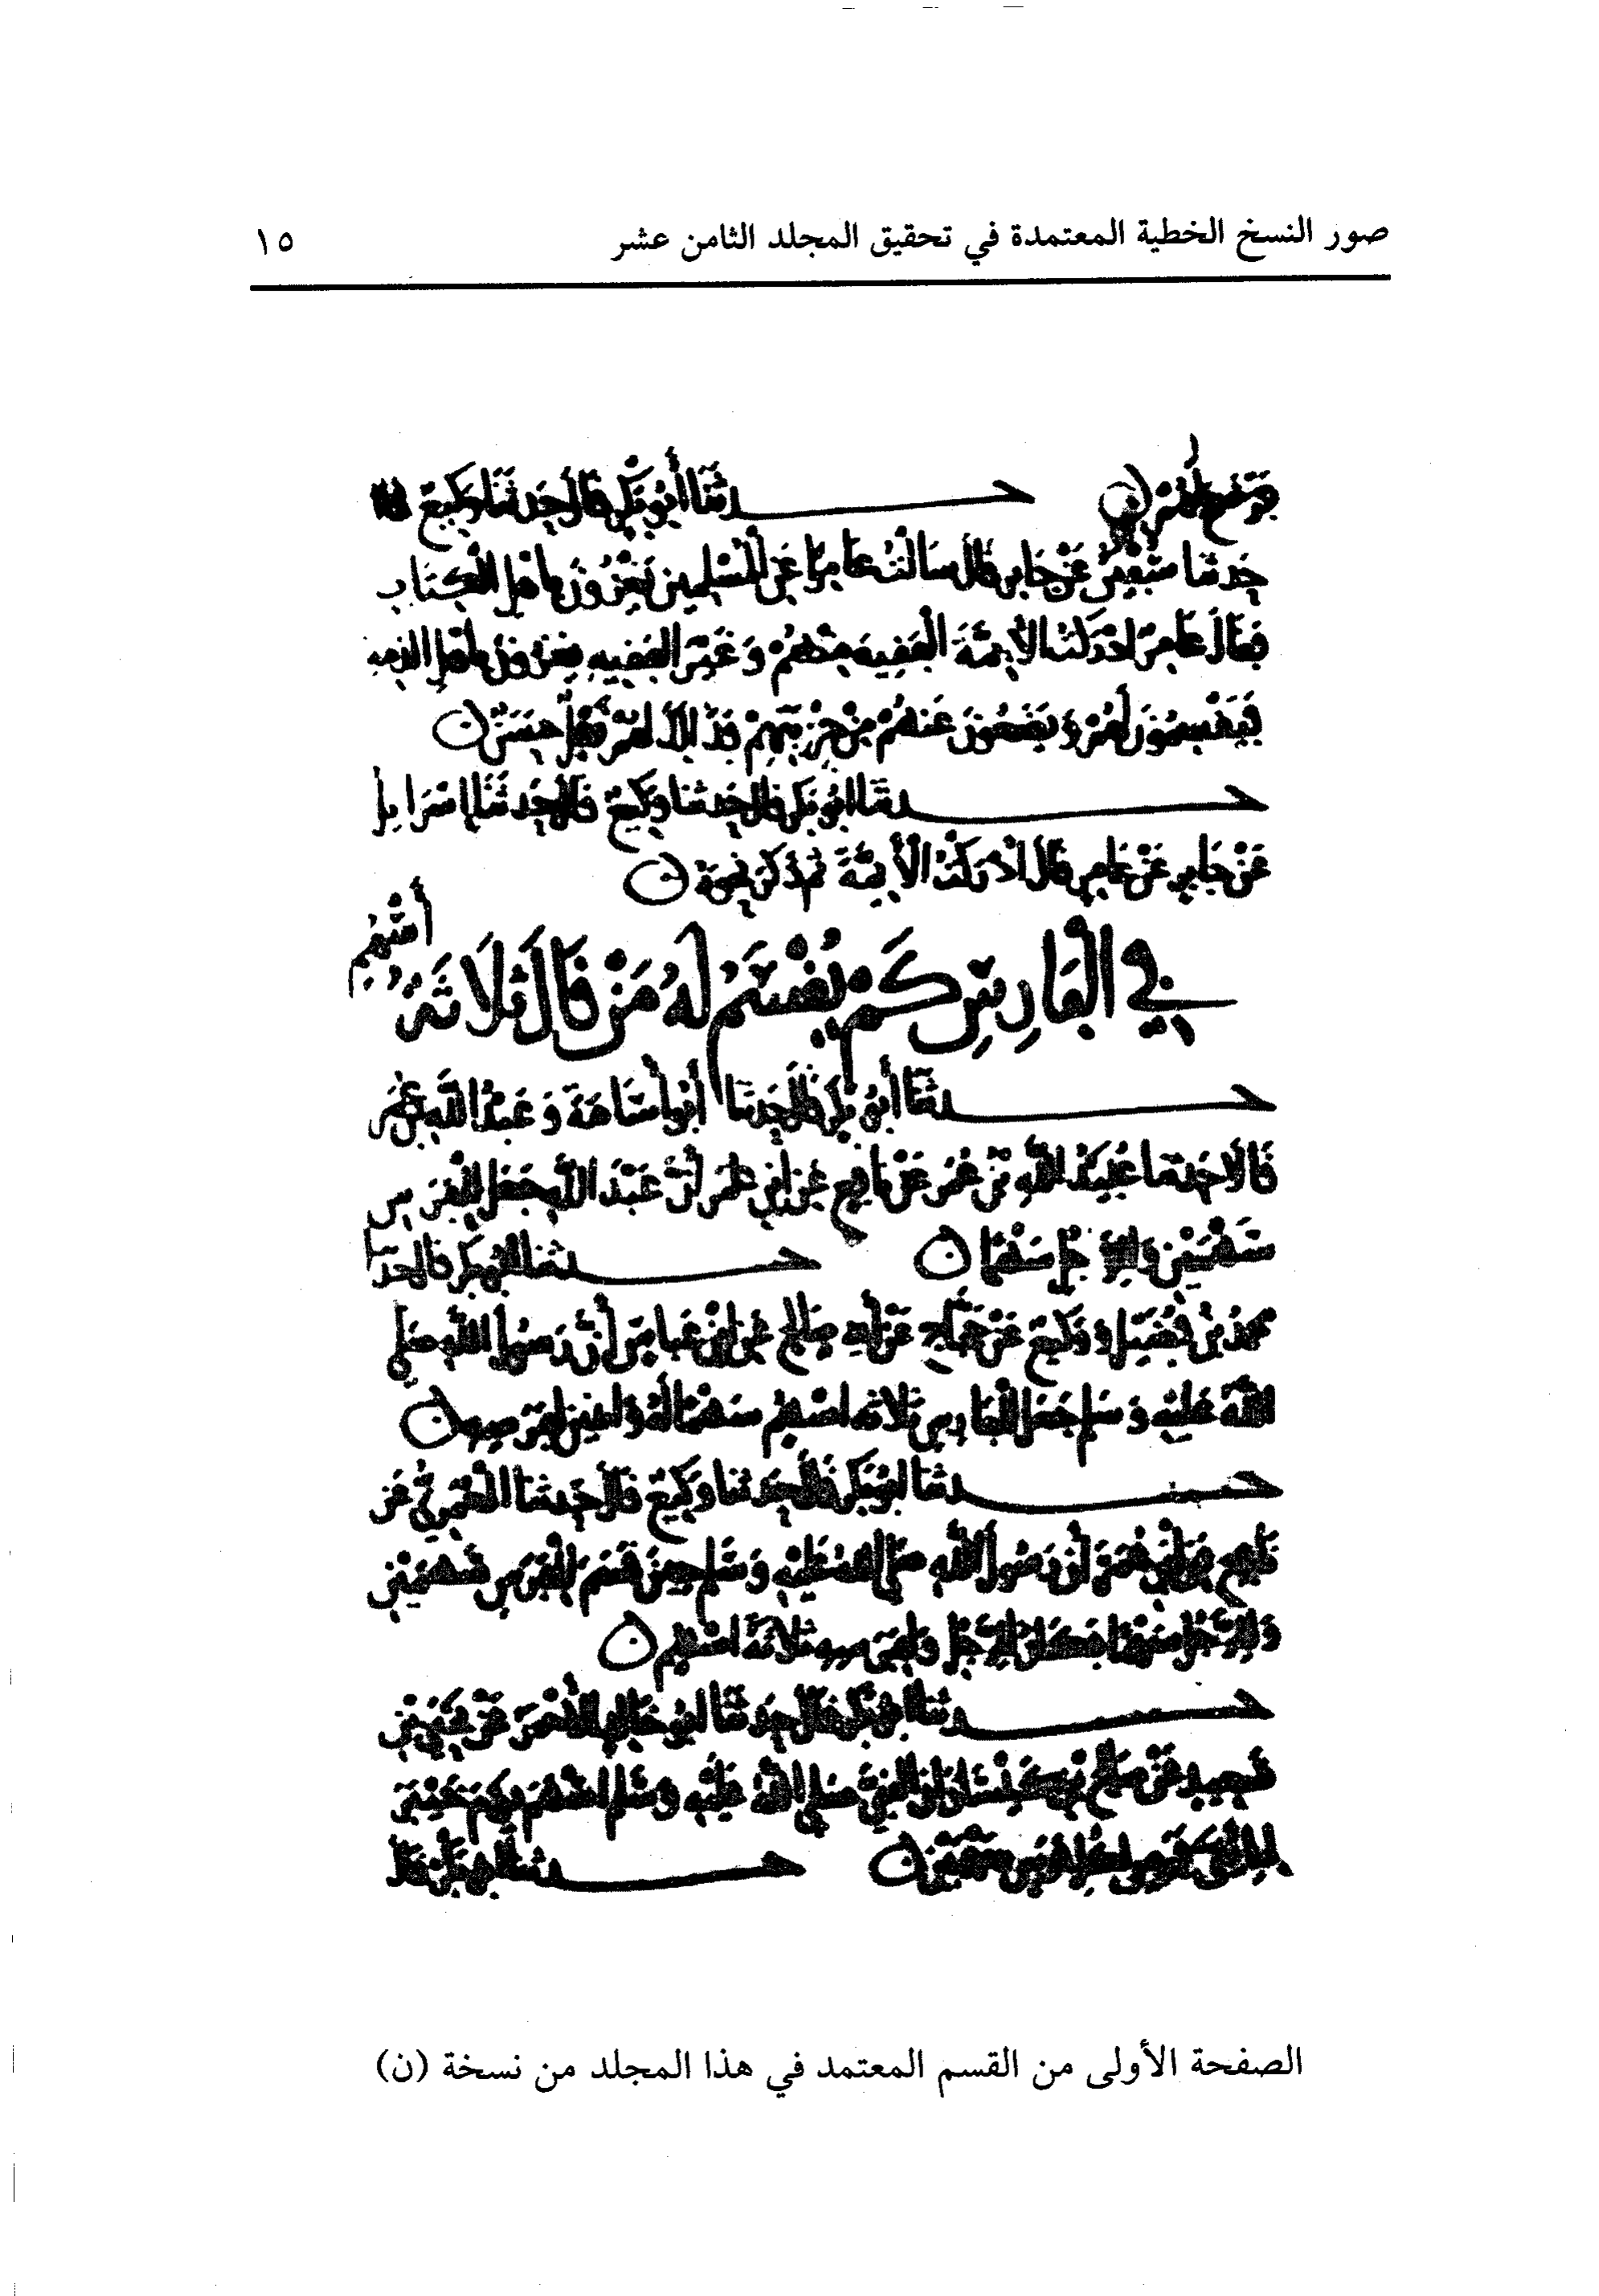 صور النسخ الخطية المعتمدة في تحقيق المجلد الثامن عشر ١٥
حدثنا أبو بكر قال حدثنا وكيع قال
حدثنا سفين عن جابر قال سالت عامرا عن المسلمين يغزون باهل الكتاب
فقال عامر ادركت الأيمة الفقيه منهم وغير الفقيه يغزون باهل الذمه
فيقسمون لهم ويضعون عنهم من جزيتهم فذلك لهم نفل حسن
حدثنا ابو بكر قال حدثنا وكيع قال حدثنا إسرايل
عن جابر عن عامر قال ادركت الأيمة ثم ذكر نحوه
في الفارس كم يقسم له من قال ثلاثة أسهم
حدثنا أبو بكر قال حدثنا أبو أسامة وعبد الله بن نمير
قالا حدثنا عبيد الله بن عمر عن نافع عن ابن عمر أن رسول الله جعل للفرس
سهمين وللرجل سهما حدثنا ابو بكر قال حدثنا
محمد بن فضيل ووكيع عن حجاج عن أبي صالح عن ابن عباس أن رسول الله صلى
الله عليه وسلم جعل للفارس ثلاثه اسهم سهما له واثنين لفرسه
حدثنا ابو بكر قال حدثنا وكيع قال حدثنا العمري عن
نافع عن ابن عمر أن رسول الله صلى الله عليه وسلم قسم للفرس سهمين
وللرجل سهما فكان للرجل ولفرسه ثلاثة اسهم
حدثنا ابو بكر قال حدثنا ابو خالد الأحمر عن يحيى بن
سعيد عن صالح بن كيسان ان النبي صلى الله عليه وسلم اسهم يوم خيبر
لمائتي فرس لكل فرس سهمين حدثنا ابو بكر قال
الصفحة الأولى من القسم المعتمد في هذا المجلد من نسخة (ن)